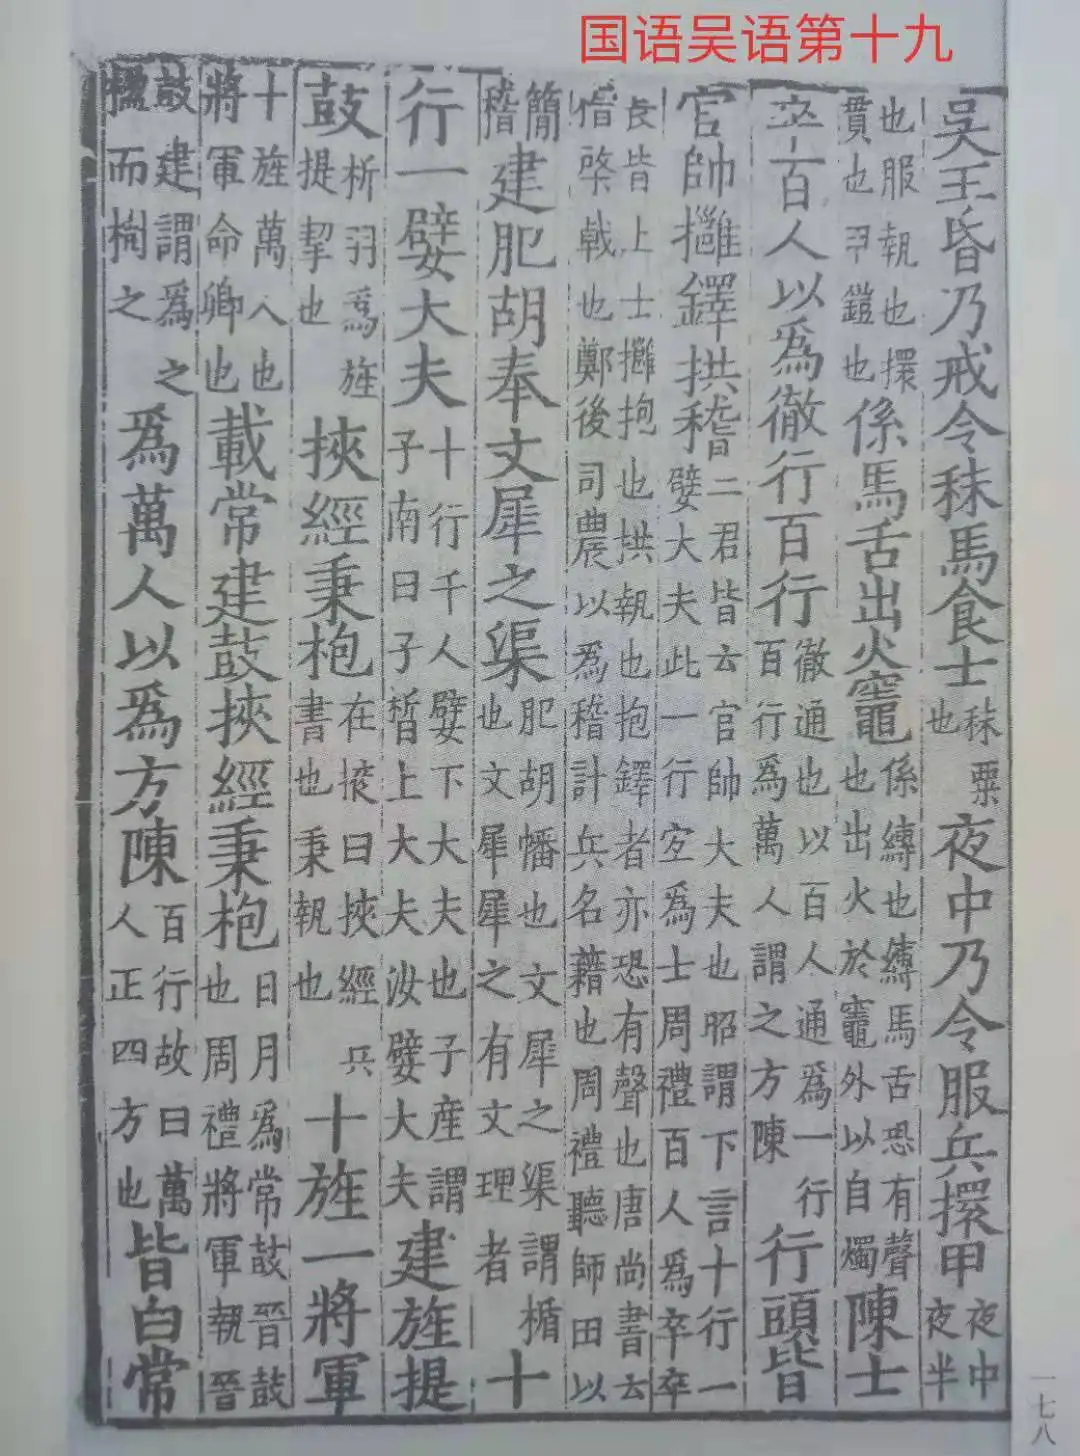 国语吴语第十九
吳王昏乃戒令秣馬食士秣粟也夜中乃令服兵擐甲夜中夜半
也服執也擐貫也甲鎧也係馬舌出火竈係縛也縛馬舌恐有聲也出火於竈外以自燭陳士
卒百人以爲徹行百行徹通也以百人通爲一行百行爲萬人謂之方陳行頭皆
官帥擁鐸拱稽二君皆云官帥大夫也昭謂下言十行一嬖大夫此一行宜爲士周禮百人爲卒卒
長皆上士擁抱也拱執也抱鐸者亦恐有聲也唐尚書云稽棨戟也鄭後司農以爲稽計兵名藉也周禮聽師田以
簡稽建肥胡奉文犀之渠肥胡幡也文犀之渠謂楯也文犀犀之有文理者十
行一嬖大夫十行千人嬖下大夫也子產謂子南曰子晳上大夫汝嬖大夫建旌提
鼓析羽爲旌提挈也挾經秉枹在掖曰挾經兵書也秉執也十旌一將軍
十旌萬人也將軍命卿也載常建鼓挾經秉枹日月爲常鼓晉鼓也周禮將軍執晉
鼓建謂爲之楹而樹之爲萬人以爲方陳百行故曰萬人正四方也皆白常
一七八